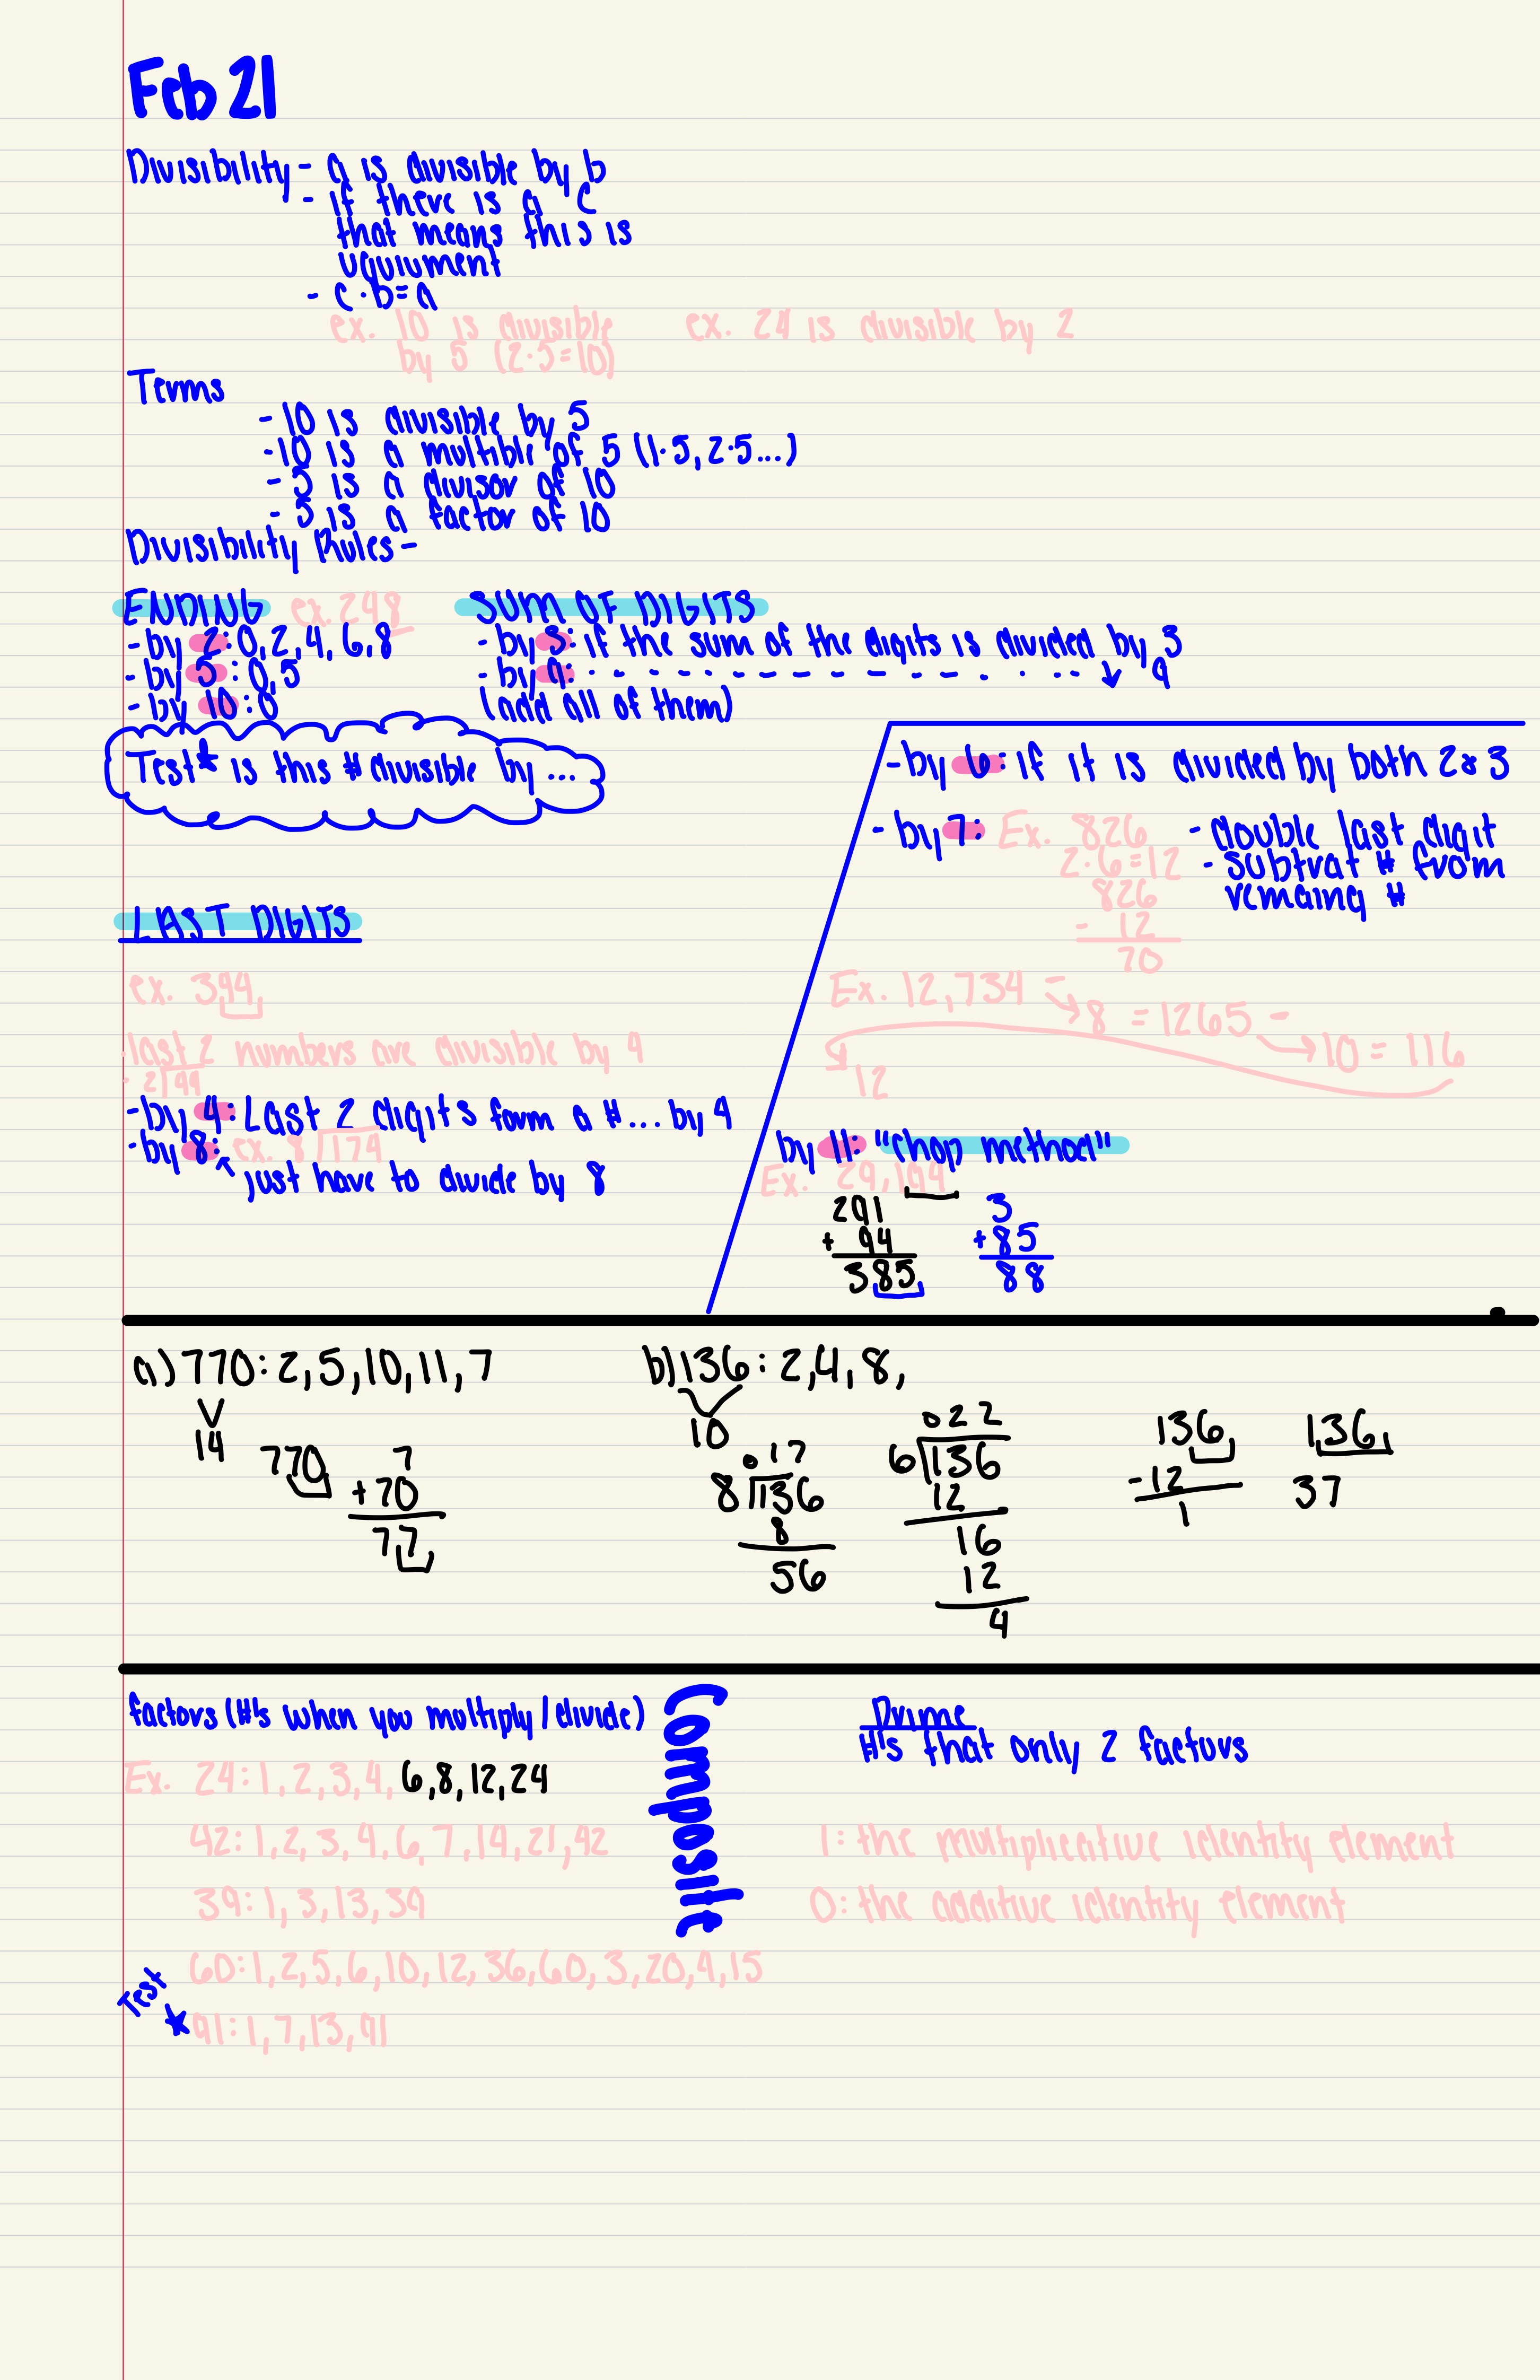 Feb 21
Divisibility - a is divisible by b
- if there is a c
that means this is
- c·b=a
ex. 10 is divisible
by 5 (2·5=10)
ex. 24 is divisible by 2
Terms
- 10 is divisible by 5
- 10 is a multible of 5 (1·5, 2·5...)
- 5 is a divisor of 10
- 5 is a factor of 10
Divisibility Rules -
ENDING ex. 248
- by 2: 0, 2, 4, 6, 8
- by 5: 0, 5
- by 10: 0
SUM OF DIGITS
- by 3: if the sum of the digits is divided by 3
- by 9: - - - - - - - - - - - - - ↓ 9
(add all of them)
Test* is this # divisible by ...
LAST DIGITS
ex. 394
last 2 numbers are divisible by 4
2|94
- by 4: Last 2 digits form a # ... by 4
- by 8: ex. 8|174
just have to divide by 8
- by 6: if it is divided by both 2 & 3
- by 7: Ex. 826
2·6=12
826
- 12
70
- double last digit
- subtrat # from
remaing #
Ex. 12,734 - → 8 = 1265 - → 10 = 116
12
by 11: "chop method"
Ex. 29,194
291
+ 94
385
3
+ 85
88
a) 770: 2, 5, 10, 11, 7
14
770
7
+70
77
b) 136: 2, 4, 8,
10
017
8|136
8
56
022
6|136
12
16
12
4
136
-12
1
136
37
factors (#'s when you multiply / divide)
Ex. 24: 1, 2, 3, 4, 6, 8, 12, 24
42: 1, 2, 3, 4, 6, 7, 14, 21, 42
39: 1, 3, 13, 39
60: 1, 2, 5, 6, 10, 12, 36, 60, 3, 20, 4, 15
Test
91: 1, 7, 13, 91
Composite
Prime
#'s that only 2 factors
1: the multiplicative identity element
0: the additive identity element